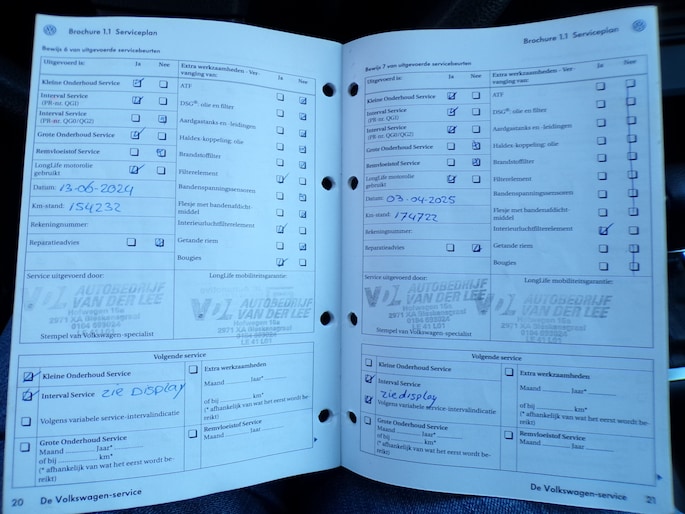 Brochure 1.1 Serviceplan
Bewijs 6 van uitgevoerde servicebeurten
Uitgevoerd is: Ja Nee
Kleine Onderhoud Service
Interval Service
(PR-nr. QG1)
Interval Service
(PR-nr. QG0/QG2)
Grote Onderhoud Service
Remvloeistof Service
LongLife motorolie
gebruikt
Datum: 13-06-2024
Km-stand: 154232
Rekeningnummer:
Reparatieadvies
Extra werkzaamheden - Ver-
vanging van: Ja Nee
ATF
DSG®: olie en filter
Aardgastanks en -leidingen
Haldex-koppeling: olie
Brandstoffilter
Filterelement
Bandenspanningssensoren
Flesje met bandenafdicht-
middel
Interieurluchtfilterelement
Getande riem
Bougies
Service uitgevoerd door:
LongLife mobiliteitsgarantie:
VDL AUTOBEDRIJF
VAN DER LEE
Hofwegen 16a
2971 XA Bleskensgraaf
0184 693024
VDL AUTOBEDRIJF
VAN DER LEE
Hofwegen 16a
2971 XA Bleskensgraaf
0184 693024
LE 41 L01
Stempel van Volkswagen-specialist
Volgende service
Kleine Onderhoud Service
Interval Service ZIE DISPLAY
Volgens variabele service-intervalindicatie
Grote Onderhoud Service
Maand ........... Jaar*
of bij ........... km*
(* afhankelijk van wat het eerst wordt be-
reikt)
Extra werkzaamheden
Maand ........... Jaar*
of bij ........... km*
(* afhankelijk van wat het eerst wordt be-
reikt)
Remvloeistof Service
Maand ........... Jaar
20 De Volkswagen-service
Brochure 1.1 Serviceplan
Bewijs 7 van uitgevoerde servicebeurten
Uitgevoerd is: Ja Nee
Kleine Onderhoud Service
Interval Service
(PR-nr. QG1)
Interval Service
(PR-nr. QG0/QG2)
Grote Onderhoud Service
Remvloeistof Service
LongLife motorolie
gebruikt
Datum: 03-04-2025
Km-stand: 174722
Rekeningnummer:
Reparatieadvies
Extra werkzaamheden - Ver-
vanging van: Ja Nee
ATF
DSG®: olie en filter
Aardgastanks en -leidingen
Haldex-koppeling: olie
Brandstoffilter
Filterelement
Bandenspanningssensoren
Flesje met bandenafdicht-
middel
Interieurluchtfilterelement
Getande riem
Bougies
Service uitgevoerd door:
LongLife mobiliteitsgarantie:
VDL AUTOBEDRIJF
VAN DER LEE
Hofwegen 16a
2971 XA Bleskensgraaf
0184 693024
LE 41 L01
VDL AUTOBEDRIJF
VAN DER LEE
Hofwegen 16a
2971 XA Bleskensgraaf
0184 693024
LE 41 L01
Stempel van Volkswagen-specialist
Volgende service
Kleine Onderhoud Service
Interval Service
zie display
Volgens variabele service-intervalindicatie
Grote Onderhoud Service
Maand ........... Jaar*
of bij ........... km*
(* afhankelijk van wat het eerst wordt be-
reikt)
Extra werkzaamheden
Maand ........... Jaar*
of bij ........... km*
(* afhankelijk van wat het eerst wordt be-
reikt)
Remvloeistof Service
Maand ........... Jaar
De Volkswagen-service 21